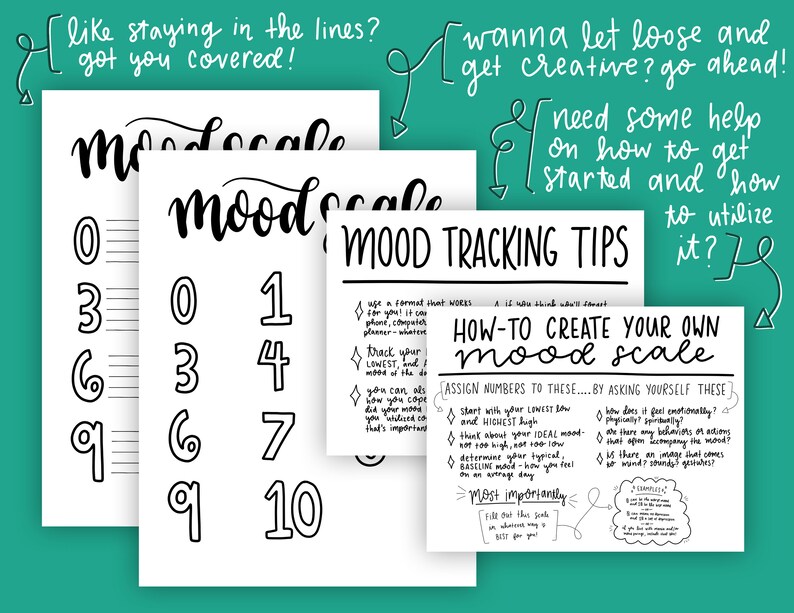 like staying in the lines?
got you covered!
wanna let loose and
get creative? go ahead!
need some help
on how to get
started and how
to utilize
it?
mood scale
0
3
6
9
mood scale
0 1
3 4
6 7
9 10
MOOD TRACKING TIPS
use a format that works
for you! it can
phone, computer
planner - whatever
track your
LOWEST, and
mood of the day
you can als
how you cope
did your mood
you utilized co
that's important
if you think you'll forget
HOW-TO CREATE YOUR OWN
mood scale
ASSIGN NUMBERS TO THESE....BY ASKING YOURSELF THESE
start with your LOWEST low
and HIGHEST high
think about your IDEAL mood-
not too high, not too low
determine your typical,
BASELINE mood - how you feel
on an average day
how does it feel emotionally?
physically? spiritually?
are there any behaviors or actions
that often accompany the mood?
is there an image that comes
to mind? sounds? gestures?
Most importantly
Fill out this scale
in whatever way is
BEST for you!
EXAMPLES